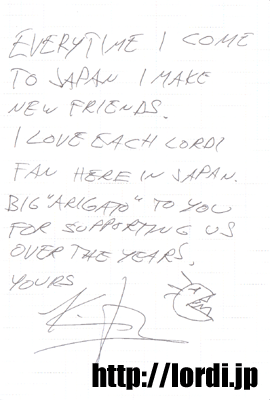 EVERYTIME I COME
TO JAPAN I MAKE
NEW FRIENDS.
I LOVE EACH LORDI
FAN HERE IN JAPAN.
BIG "ARIGATO" TO YOU
FOR SUPPORTING US
OVER THE YEARS.
YOURS
http://lordi.jp